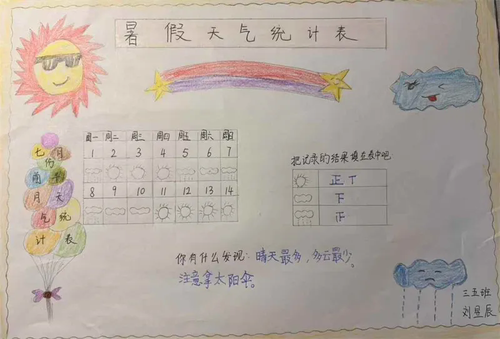 暑假天气统计表
七月份
雨季
月天
气统
计表
周一 周二 周三 周四 周五 周六 周日
1 2 3 4 5 6 7
8 9 10 11 12 13 14
把试录的结果填在表中吧
正丅
下
正
你有什么发现：晴天最多，多云最少。
注意拿太阳伞。
三五班
刘昱辰